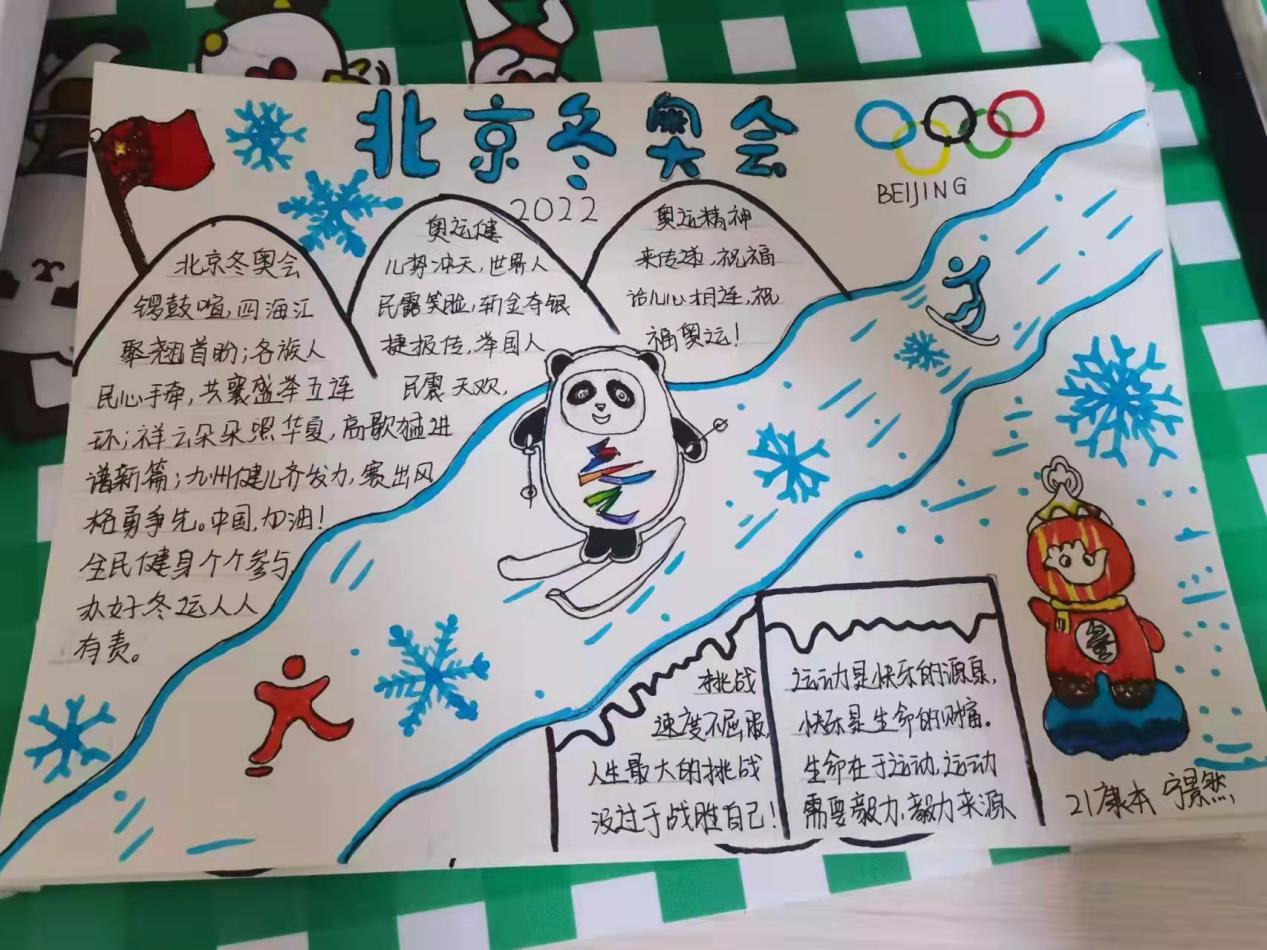 北京冬奥会
2022
BEIJING
北京冬奥会
锣鼓喧,四海江
聚翘首盼;各族人
民心手牵,共襄盛举五连
环;祥云朵朵照华夏,高歌猛进
谱新篇;九州健儿齐发力,赛出风
格勇争先。中国,加油!
全民健身个个参与,
办好冬运人人
有责。
奥运健
儿势冲天,世界人
民露笑脸,斩金夺银
捷报传,举国人
民震天欢,
奥运精神
来传递,祝福
诒儿心相连,祝
福奥运!
挑战
速度不屈服,
人生最大的挑战
没过于战胜自己!
运动是快乐的源泉,
快乐是生命的财富。
生命在于运动,运动
需要毅力,毅力来源
21康本 宁景然